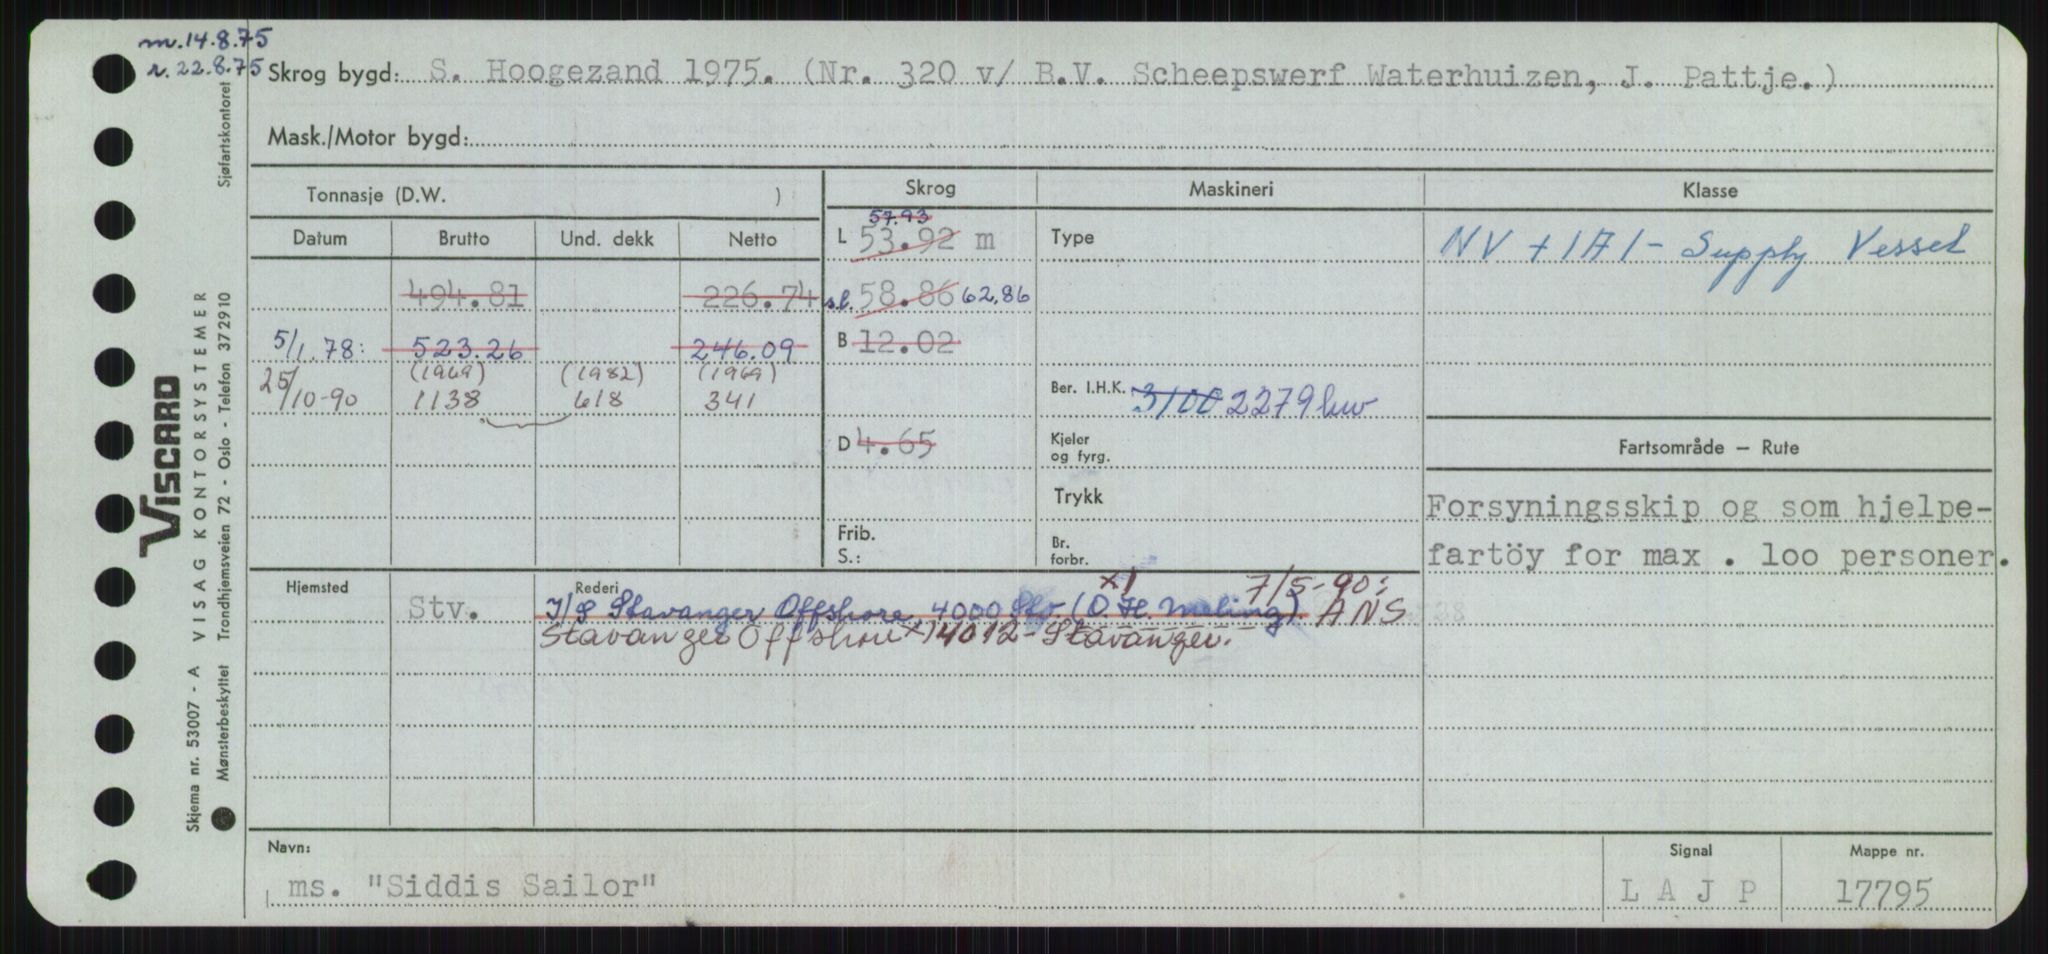 m. 14.8.75
r. 22.8.75
Skrog bygd: S. Hoogezand 1975. (Nr. 320 v/ B.V. Scheepswerf Waterhuizen, J. Pattje.)
Mask./Motor bygd:
Tonnasje (D.W. )
Skrog
Maskineri
Klasse
Datum
Brutto
Und. dekk
Netto
57.93
L 53.92 m
Type
NV + 1A1 - Supply Vessel
494.81
226.74
sl. 58.86 62.86
5/1.78:
523.26
246.09
B 12.02
25/10-90
(1969)
(1982)
(1969)
1138
618
341
Ber. I.H.K. 3100 2279 kw
D 4.65
Kjeler
og fyrg.
Fartsområde — Rute
Trykk
Forsyningsskip og som hjelpe-
Frib.
S.:
Br.
forbr.
fartöy for max . loo personer.
Hjemsted
Rederi
x1
7/5-90:
Stv.
I/S Stavanger Offshore, 4000 Stv (O.H. Meling). ANS
Stavanger Offshore x) 4012 - Stavanger.
Navn:
ms. "Siddis Sailor"
Signal
L A J P
Mappe nr.
17795
VISCARD
Skjema nr. 53007 - A VISAG KONTORSYSTEMER
Mønsterbeskyttet Trondhjemsveien 72 - Oslo - Telefon 372910
Sjøfartskontoret